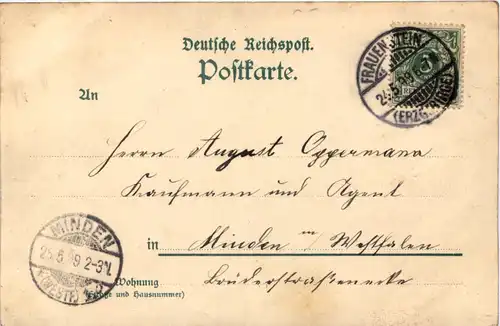 Deutsche Reichspost.
Postkarte.
FRAUENSTEIN
(ERZGEBIRGE)
An
Herrn August Oppermann
Kaufmann und Agent
in Minden in/Westfalen
Wohnung Brüderstraßenecke
(Straße und Hausnummer)
MINDEN
25.5.99 2-3N.
(WESTF)